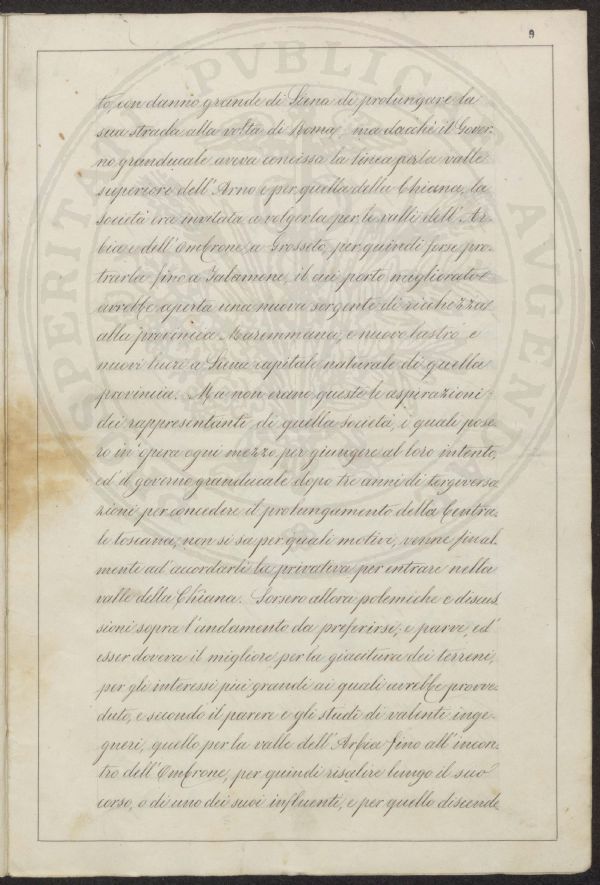 9
to, con danno grande di Siena di prolungare la
sua strada alla volta di Roma, ma dacchè il Gover:
no granducale aveva concessa la linea per la valle
superiore dell'Arno e per quella della Chiana, la
società era invitata a volgerla per le valli dell'Ar:
bia e dell'Ombrone, a Grosseto, per quindi forse pro:
trarla fino a Talamone, il cui porto migliorato
avrebbe aperta una nuova sorgente di ricchezza
alla provincia Maremmana, e nuovo lustro e
nuovi lucri a Siena capitale naturale di quella
provincia. Ma non erano queste le aspirazioni
dei rappresentanti di quella società, i quali pose:
ro in opera ogni mezzo per giungere al loro intento,
ed il governo granducale dopo tre anni di tergiversa
zioni per concedere il prolungamento della Centra:
le toscana, non si sa per quali motivi, venne final:
mente ad accordarli la privativa per entrare nella
valle della Chiana. Sorsero allora polemiche e discus
sioni sopra l'andamento da preferirsi, e parve, ed
esser doveva il migliore per la giacitura dei terreni,
per gli interessi più grandi ai quali avrebbe provve:
duto, e secondo il parere e gli studi di valenti inge:
gneri, quello per la valle dell'Arbia fino all'incon:
tro dell'Ombrone, per quindi risalire lungo il suo
corso, o di uno dei suoi influenti, e per quello discende
PROSPERITATI PVBLICAE AVGENDAE